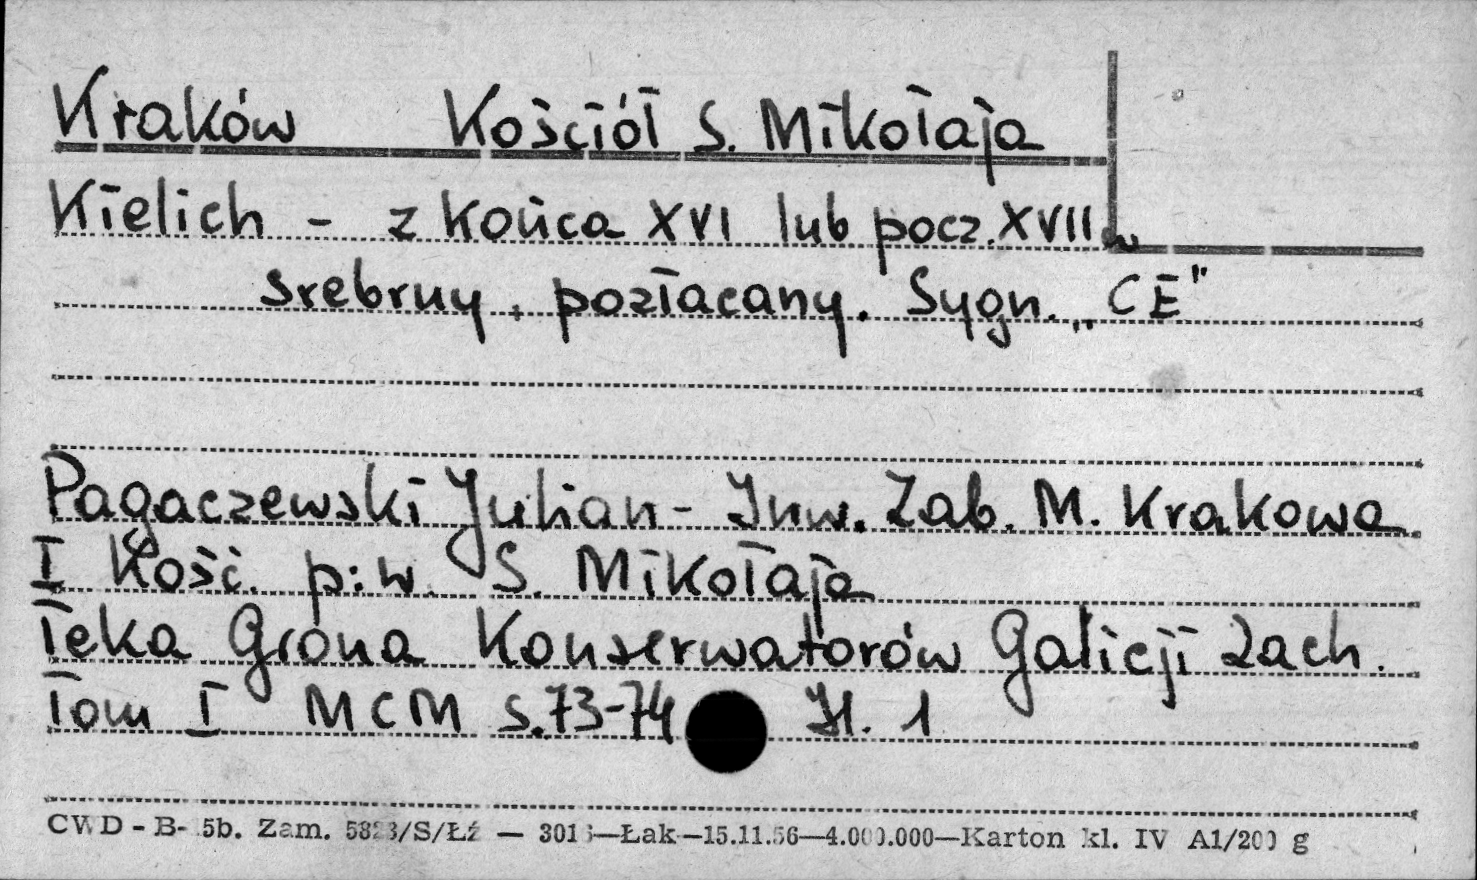 Kraków Kościół S. Mikołaja
Kielich - z końca XVI lub pocz. XVII w
srebrny, pozłacany. Sygn. „CE"
Pagaczewski Julian - Inw. Zab. M. Krakowa
I Kość. p.w. S. Mikołaja
Teka Grona Konserwatorów Galicji Zach.
Tom I MCM s. 73-74 Il. 1
CWD - B- 5b. Zam. /S/Łź — —Łak—15.11.56—4.000.000—Karton kl. IV A1/200 g